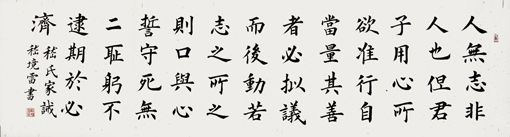 人無志非
人也但君
子用心所
欲准行自
當量其善
者必拟議
而後動若
志之所之
則口與心
誓守死無
二耻躬不
逮期於必
濟
嵇氏家誡
嵇境雷書